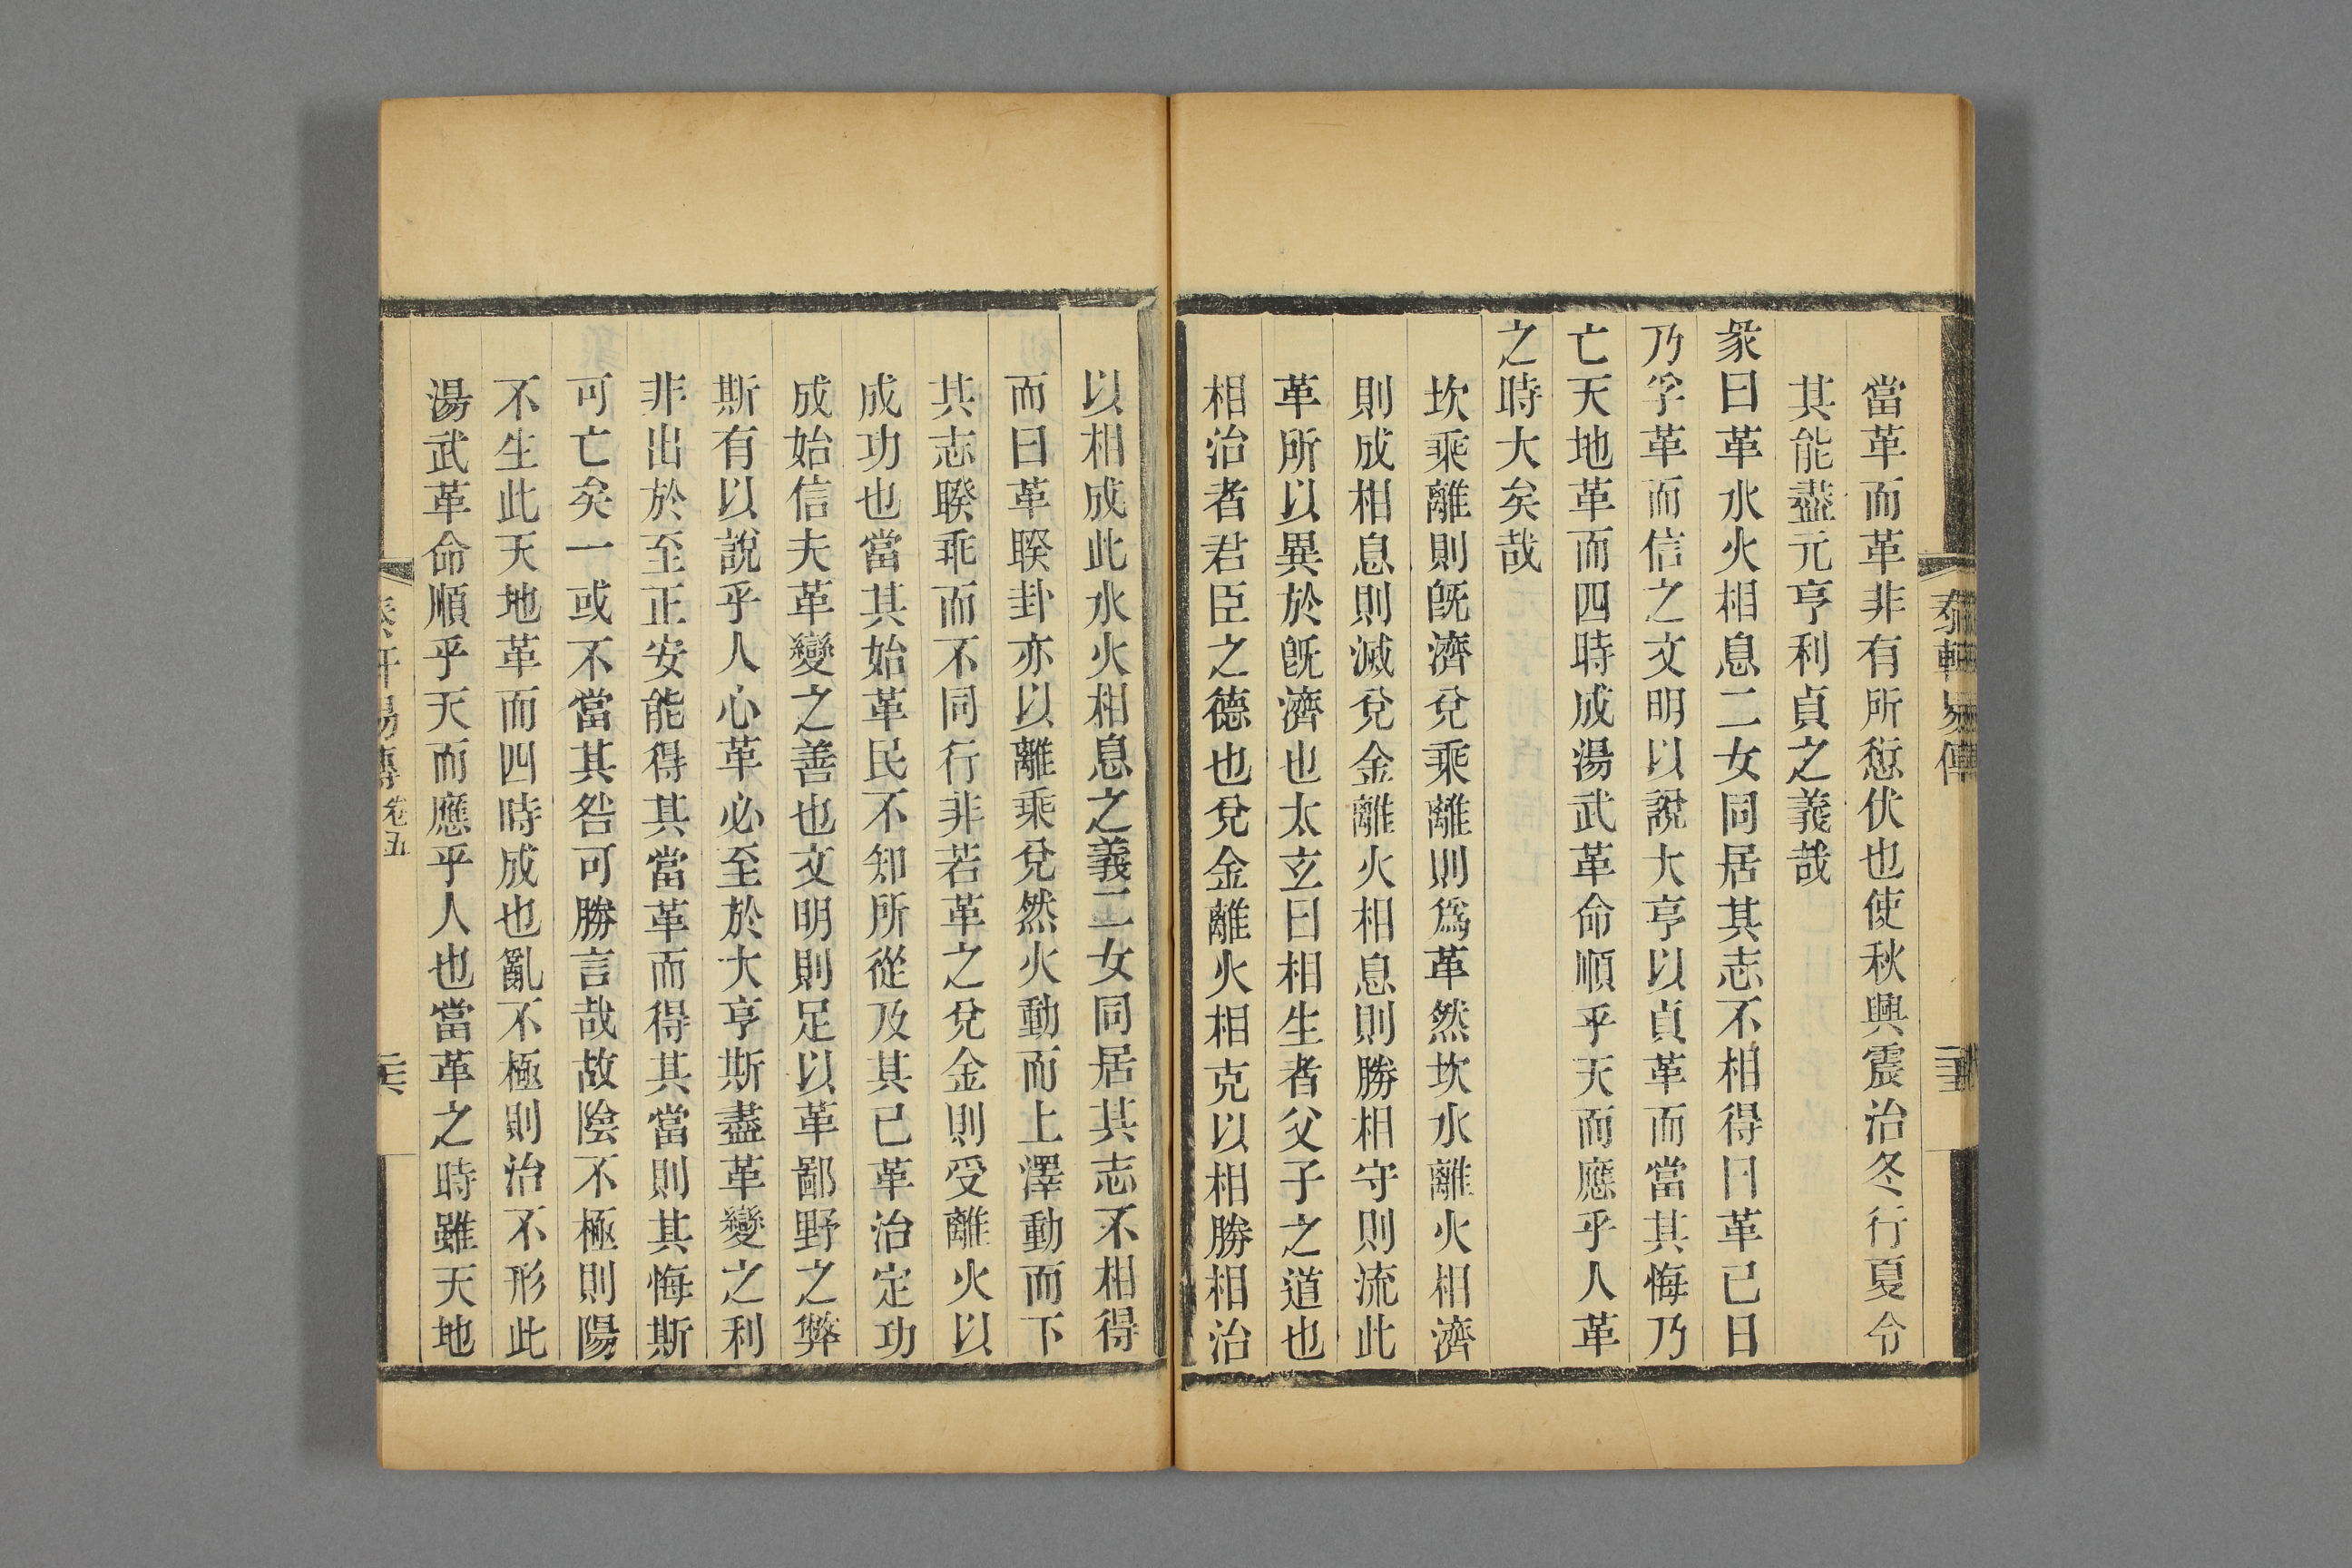 當革而革非有所愆伏也使秋興震治冬行夏令
其能盡元亨利貞之義哉
彖曰革水火相息二女同居其志不相得曰革已日
乃孚革而信之文明以說大亨以貞革而當其悔乃
亡天地革而四時成湯武革命順乎天而應乎人革
之時大矣哉
坎乘離則旣濟兌乘離則爲革然坎水離火相濟
則成相息則滅兌金離火相息則勝相守則流此
革所以異於旣濟也太玄曰相生者父子之道也
相治者君臣之德也兌金離火相克以相勝相治
以相成此水火相息之義二女同居其志不相得
而曰革睽卦亦以離乘兌然火動而上澤動而下
其志睽乖而不同行非若革之兌金則受離火以
成功也當其始革民不知所從及其已革治定功
成始信夫革變之善也文明則足以革鄙野之弊
斯有以說乎人心革必至於大亨斯盡革變之利
非出於至正安能得其當革而得其當則其悔斯
可亡矣一或不當其咎可勝言哉故陰不極則陽
不生此天地革而四時成也亂不極則治不形此
湯武革命順乎天而應乎人也當革之時雖天地
易傳卷五